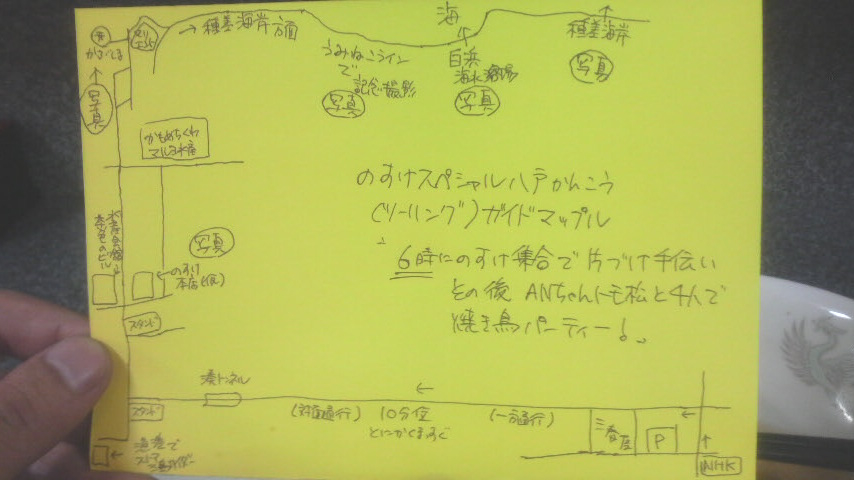 海
→種差海岸方面
種差海岸
かぶしま
うみねこラインで
記念撮影
写真
白浜
海水浴場
写真
写真
写真
かもめちくわ
マルヨ水産
のすけスペシャル八戸かんこう
(ツーリング)ガイドマップル
6時にのすけ集合で片づけ手伝い
その後ANちゃんトモ松と4人で
焼き鳥パーティー!
水産会館
茶色のビル
写真
のすけ
本店(仮)
スタンド
湊トンネル
スタンド
(対面通行)
10分位
とにかくまっすぐ
(一方通行)
三春屋
P
NHK